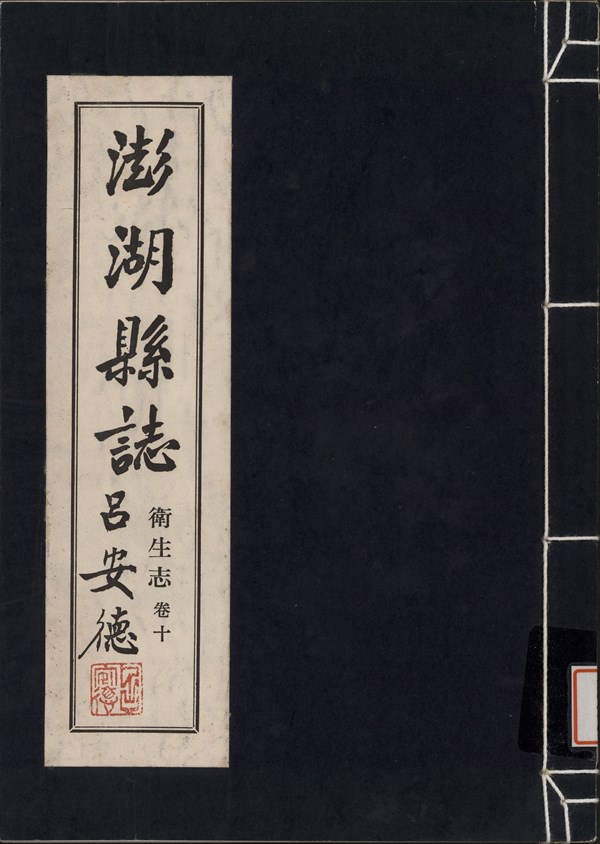 澎湖縣誌
衛生志 卷十
呂安德